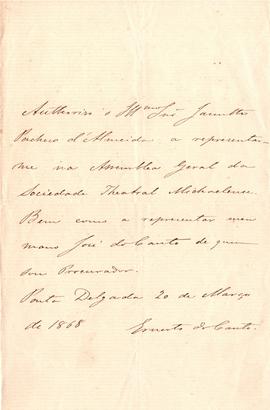 Authoriso o Illmo Snr Jacintho
Pacheco d'Almeida a representar-
me na Assemblea Geral da
Sociedade Theatral Michaelense.
Bem como a representar meu
mano José do Canto de quem
sou Procurador.
Ponta Delgada 20 de Março
de 1868
Ernesto do Canto.